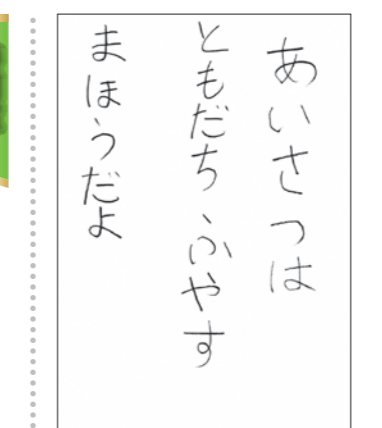 あいさつは
ともだちふやす
まほうだよ